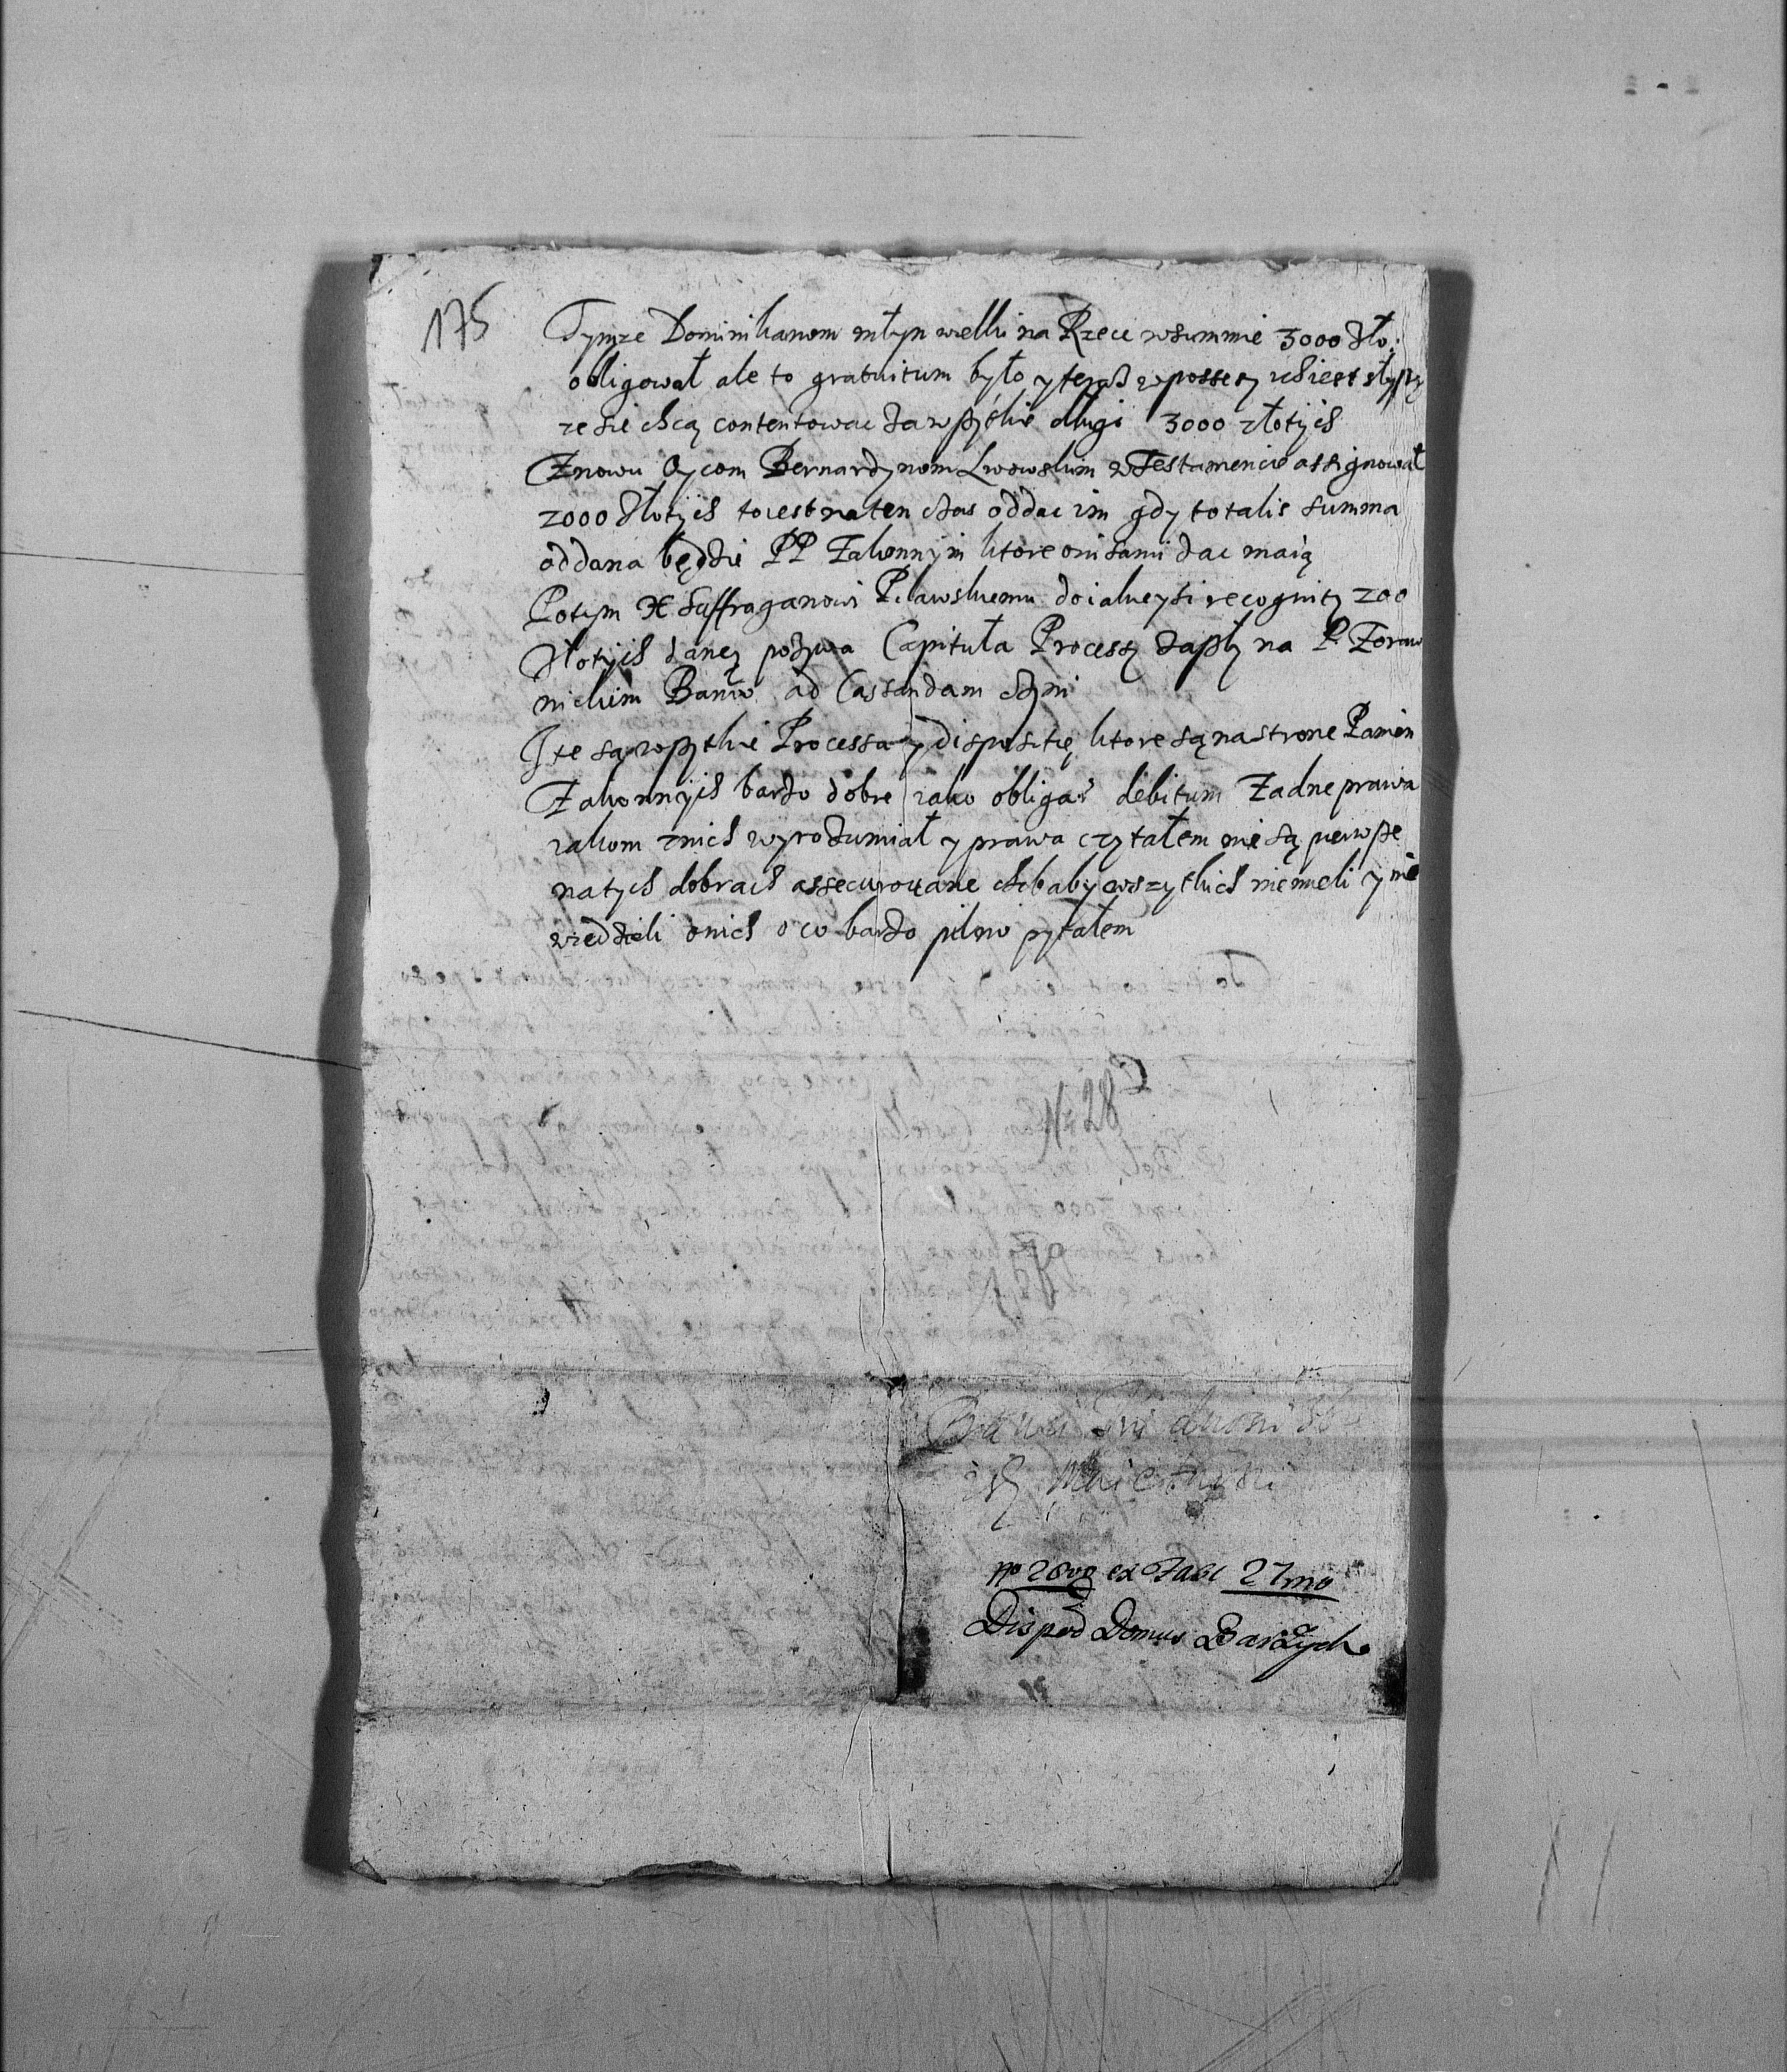 175
Tymze Dominikanom młyn wielki na Rzece w summie 3000 zło:
obligował ale to gratuitum było y teraz w possesy ich iest słyszę
ze sie chcą contentowac za wszytkie długi 3000 złotych
Znowu Oycom Bernardynom Lwowskim w Testamencie assignował
2000 złotych to iest na ten czas oddac im gdy totalis summa
oddana będzie PP Zakonnym ktore oni sami dac maią
Potym X Suffraganowi Pilawskiemu do iakieysi recognity 200
złotych daney pozywa Capituła Processy zaszły na P. Zoraw
nickim ad Cassandam czyni
I te są wszytkie Processa y dispositię ktore są na strone Panien
Zakonnych bardo dobre iako obligas debitum Zadne prawa
iakom z nich wyrozumiał y prawa czytałem nie są pierwsze
na tych dobrach assecurowane chebaby wszytkich niemieli y nie
wiedzieli o nich o co bardo pilno pytałem
Nr 28
ex Fasc 27mo
Domus Barzych